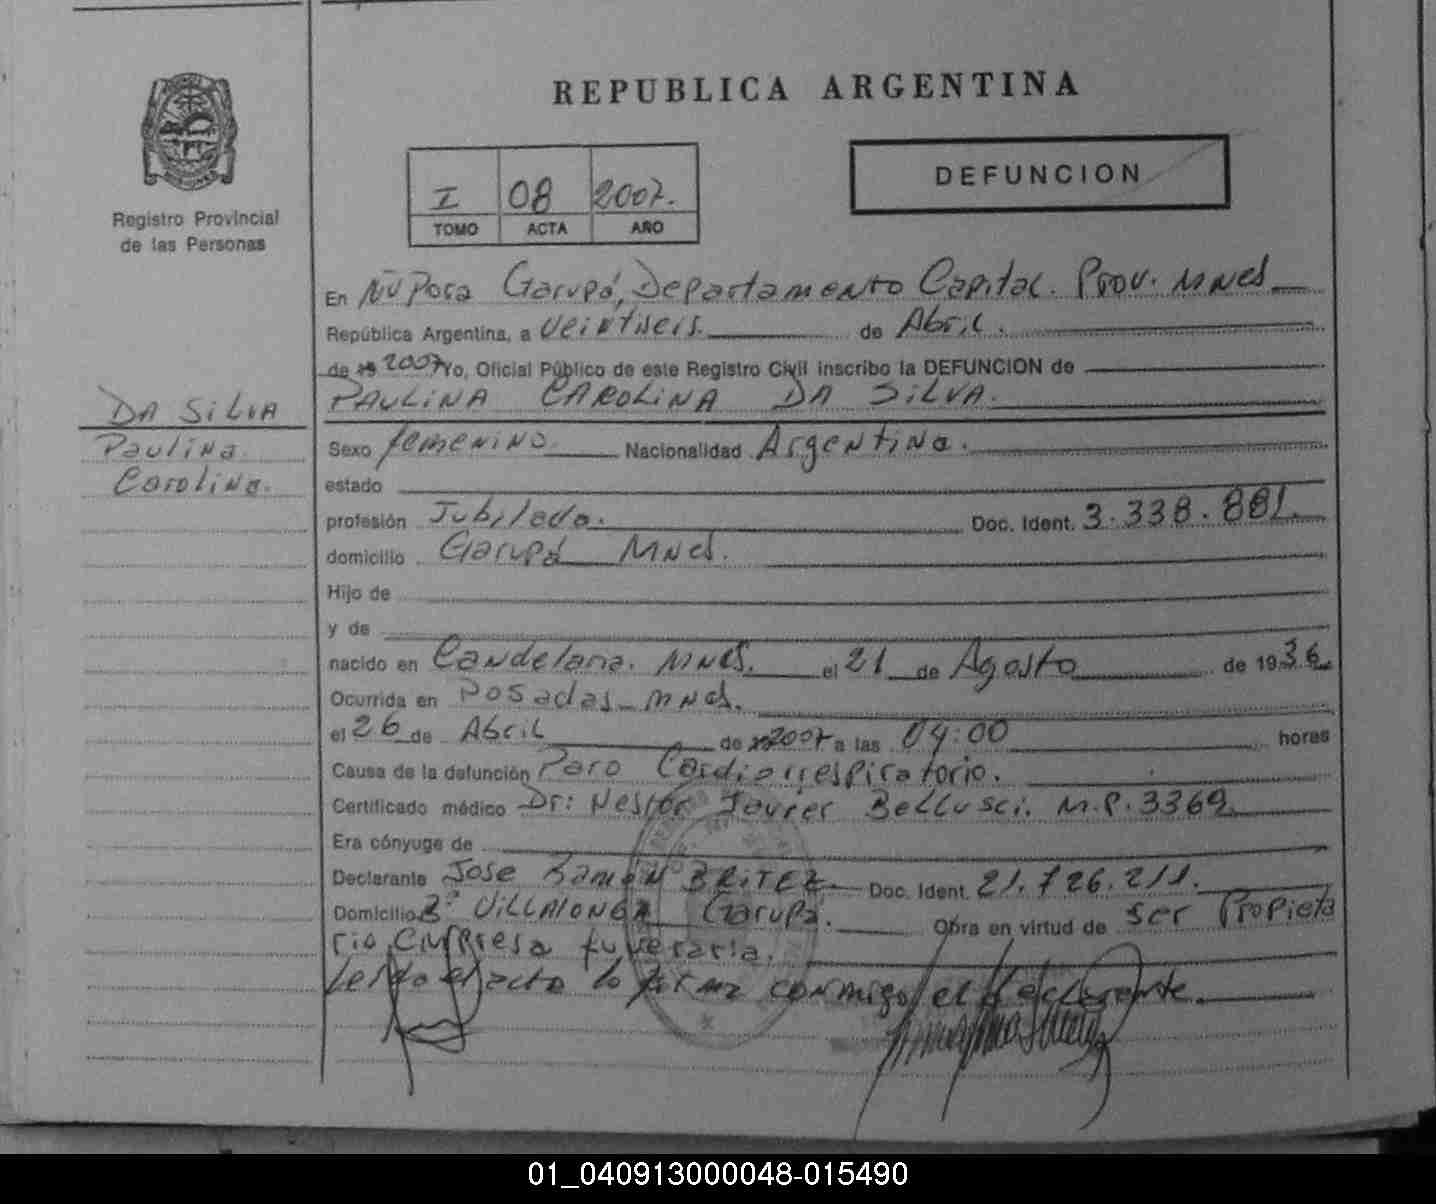 REPUBLICA ARGENTINA
DEFUNCION
I 08 2007.
TOMO ACTA AÑO
Registro Provincial
de las Personas
DA SILVA
Paulina
Carolina.
En Ñu Pora Garupá, Departamento Capital. Prov. Mnes
República Argentina, a veintiseis. de Abril.
de 19 2007 Yo, Oficial Público de este Registro Civil inscribo la DEFUNCION de
PAULINA CAROLINA DA SILVA.
Sexo femenino. Nacionalidad Argentina.
estado
profesión Jubilada. Doc. Ident. 3.338.881.
domicilio Garupá Mnes.
Hijo de
y de
nacido en Candelaria. Mnes. el 21 de Agosto de 1936
Ocurrida en Posadas Mnes.
el 26 de Abril de 2007 a las 04:00 horas
Causa de la defunción Paro Cardiorrespiratorio.
Certificado médico Dr: Nestor Javier Bellusci. M.P. 3369
Era cónyuge de
Declarante Jose Ramón BRITEZ Doc. Ident. 21.726.211.
Domicilio Bº VILLALONGA Garupá. Obra en virtud de ser Propieta
rio Empresa funeraria.
Leido el acta la firma conmigo el declarante.
01_040913000048-015490